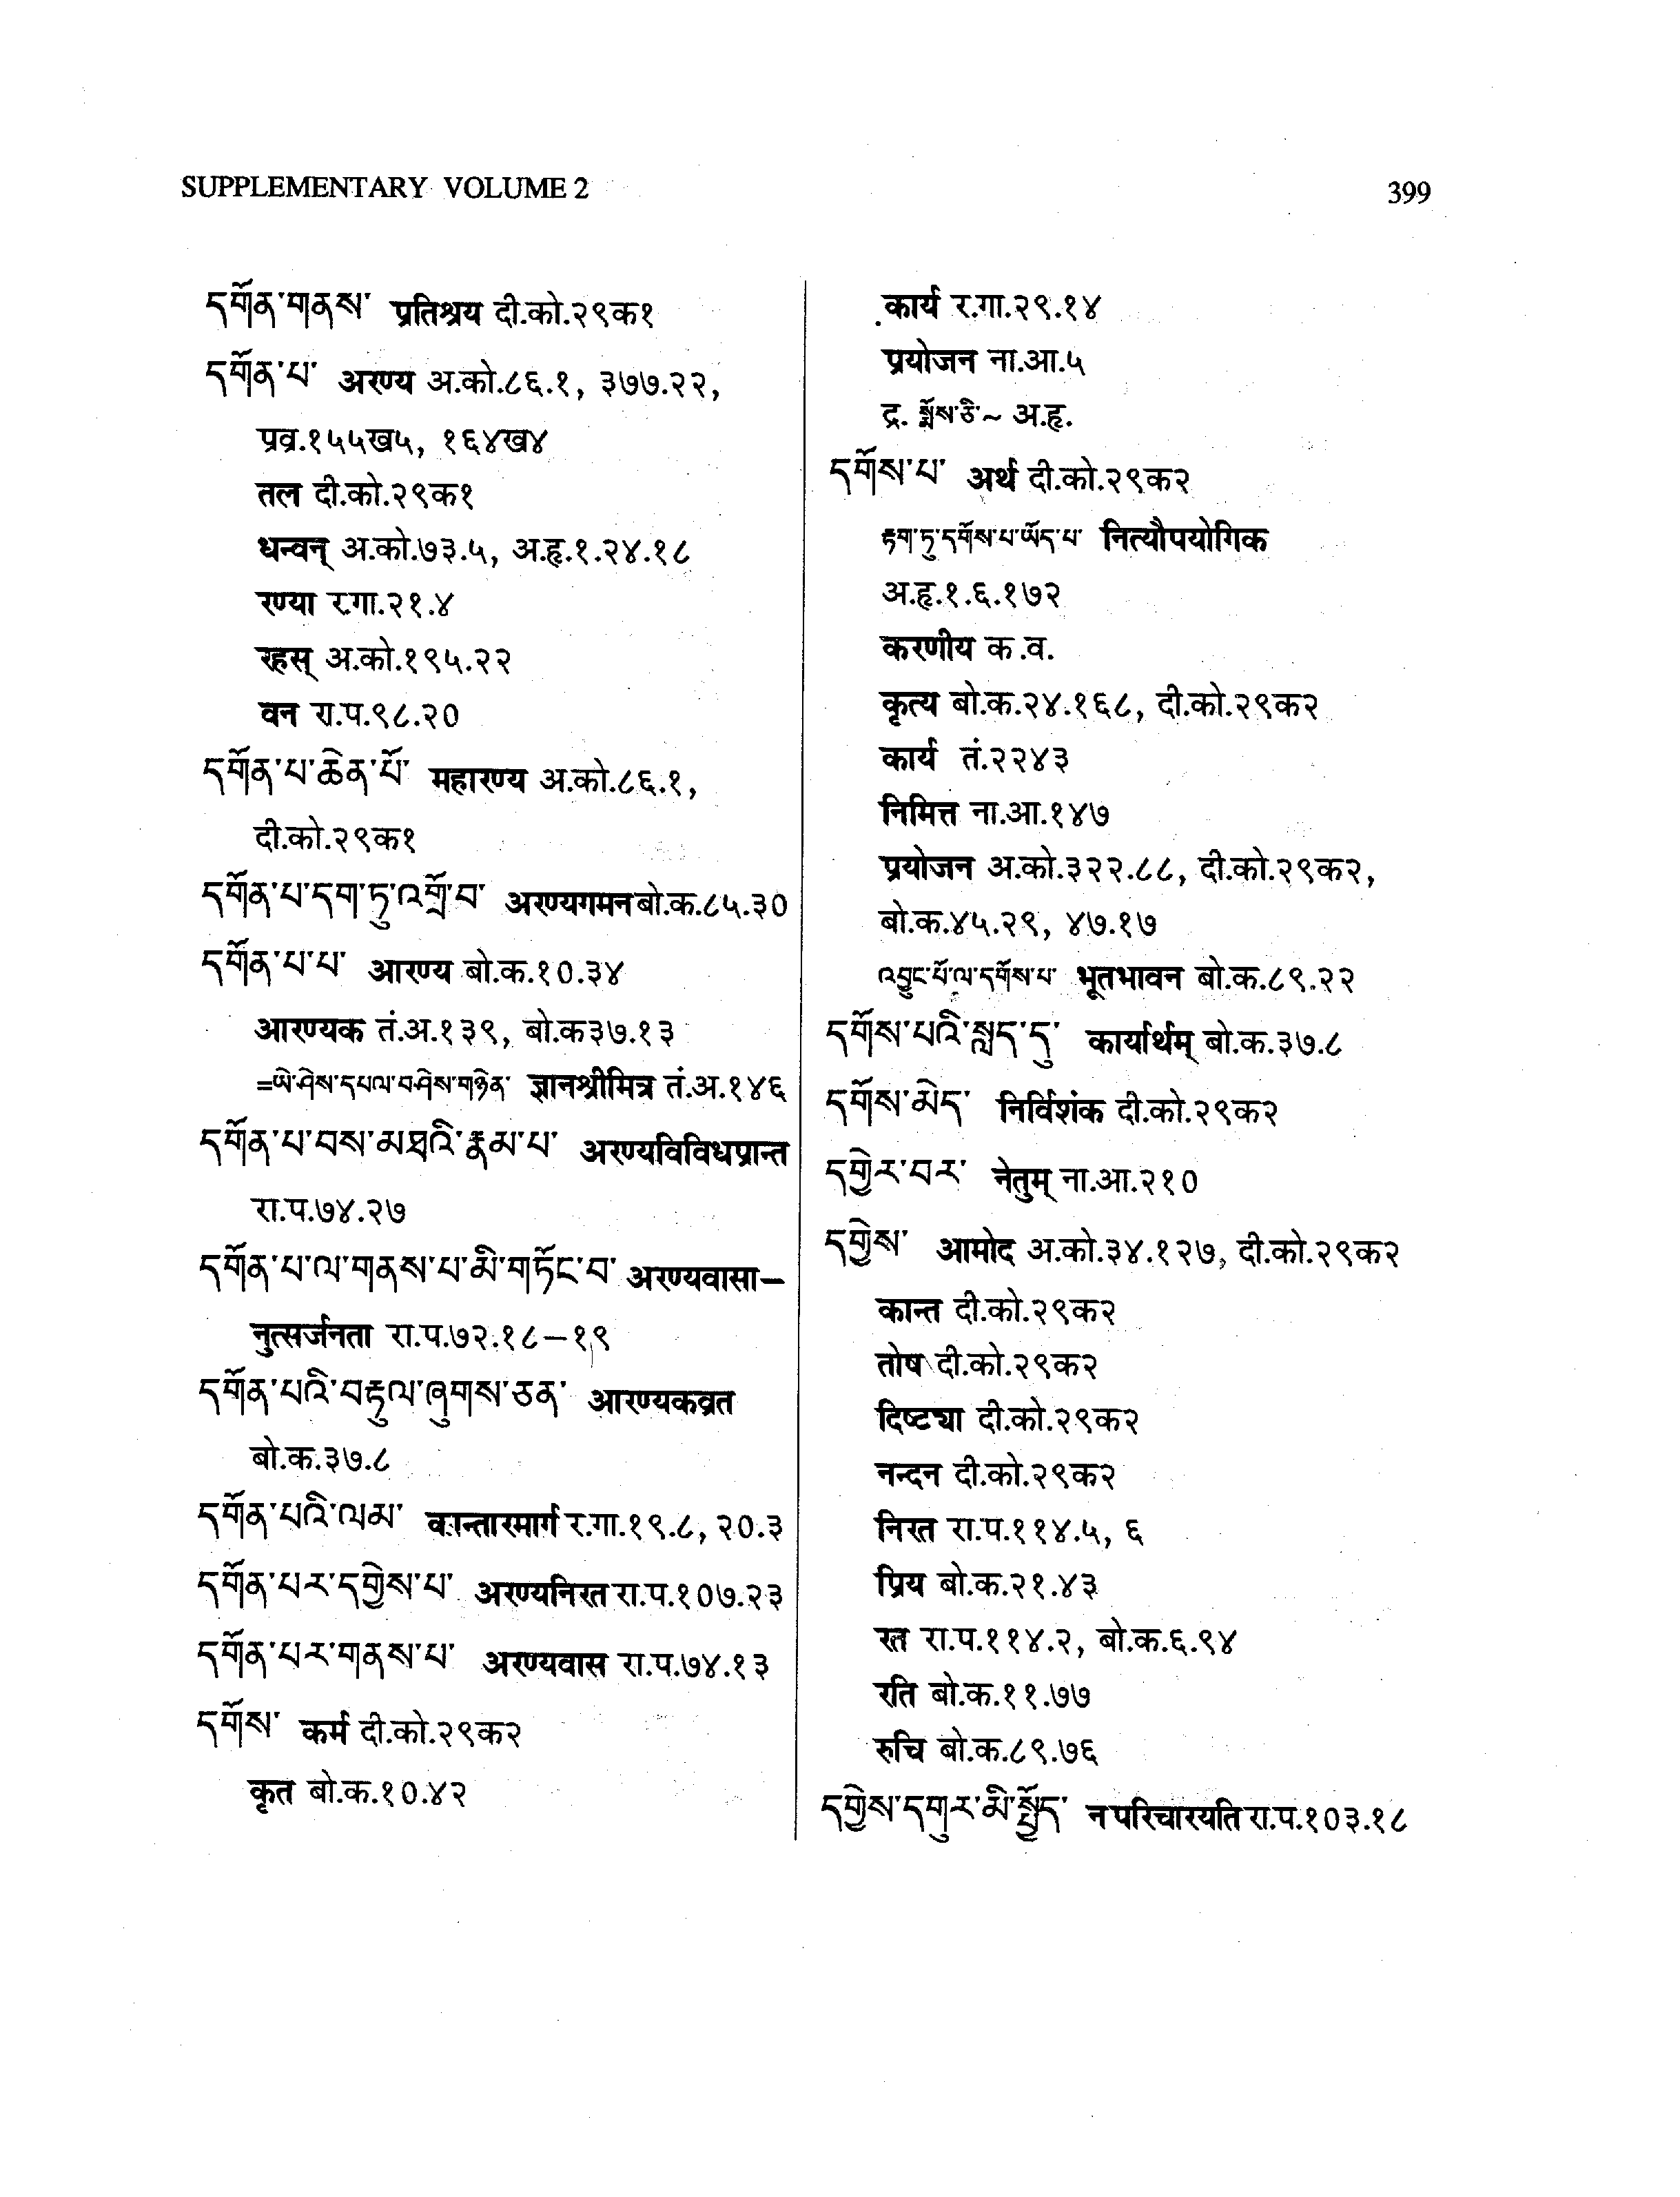 SUPPLEMENTARY VOLUME 2
399
དགོན་གནས་ प्रतिश्रय दी.को.२९क१
དགོན་པ་ अरण्य अ.को.८६.१, ३७७.२२,
प्रव्र.१५५ख५, १६४ख४
तल दी.को.२९क१
धन्वन् अ.को.७३.५, अ.हृ.१.२४.१८
रण्या र.गा.२१.४
रहस् अ.को.१९५.२२
वन रा.प.९८.२०
དགོན་པ་ཆེན་པོ་ महारण्य अ.को.८६.१,
दी.को.२९क१
དགོན་པ་དག་ཏུ་འགྲོ་བ་ अरण्यगमन बो.क.८५.३०
དགོན་པ་པ་ आरण्य बो.क.१०.३४
आरण्यक तं.अ.१३९, बो.क३७.१३
=ཡེ་ཤེས་དཔལ་བཤེས་གཉེན་ ज्ञानश्रीमित्र तं.अ.१४६
དགོན་པ་བས་མཐའི་རྣམ་པ་ अरण्यविविधप्रान्त
रा.प.७४.२७
དགོན་པ་ལ་གནས་པ་མི་གཏོང་བ་ अरण्यवासा–
नुत्सर्जनता रा.प.७२.१८–१९
དགོན་པའི་བརྟུལ་ཞུགས་ཅན་ आरण्यकव्रत
बो.क.३७.८
དགོན་པའི་ལམ་ कान्तारमार्ग र.गा.१९.८, २०.३
དགོན་པར་དགྱེས་པ་ अरण्यनिरत रा.प.१०७.२३
དགོན་པར་གནས་པ་ अरण्यवास रा.प.७४.१३
དགོས་ कर्म दी.को.२९क२
कृत बो.क.१०.४२
कार्य र.गा.२९.१४
प्रयोजन ना.आ.५
द्र. སྨོས་ཅི་~ अ.हृ.
དགོས་པ་ अर्थ दी.को.२९क२
རྟག་ཏུ་དགོས་པ་ཡོད་པ་ नित्यौपयोगिक
अ.हृ.१.६.१७२
करणीय क.व.
कृत्य बो.क.२४.१६८, दी.को.२९क२
कार्य तं.२२४३
निमित्त ना.आ.१४७
प्रयोजन अ.को.३२२.८८, दी.को.२९क२,
बो.क.४५.२९, ४७.१७
འབྱུང་པོ་ལ་དགོས་པ་ भूतभावन बो.क.८९.२२
དགོས་པའི་སླད་དུ་ कार्यार्थम् बो.क.३७.८
དགོས་མེད་ निर्विशंक दी.को.२९क२
དགྱེར་བར་ नेतुम् ना.आ.२१०
དགྱེས་ आमोद अ.को.३४.१२७, दी.को.२९क२
कान्त दी.को.२९क२
तोष दी.को.२९क२
दिष्ट्या दी.को.२९क२
नन्दन दी.को.२९क२
निरत रा.प.११४.५, ६
प्रिय बो.क.२१.४३
रत रा.प.११४.२, बो.क.६.९४
रति बो.क.११.७७
रुचि बो.क.८९.७६
དགྱེས་དགུར་མི་སྤྱོད་ न परिचारयति रा.प.१०३.१८